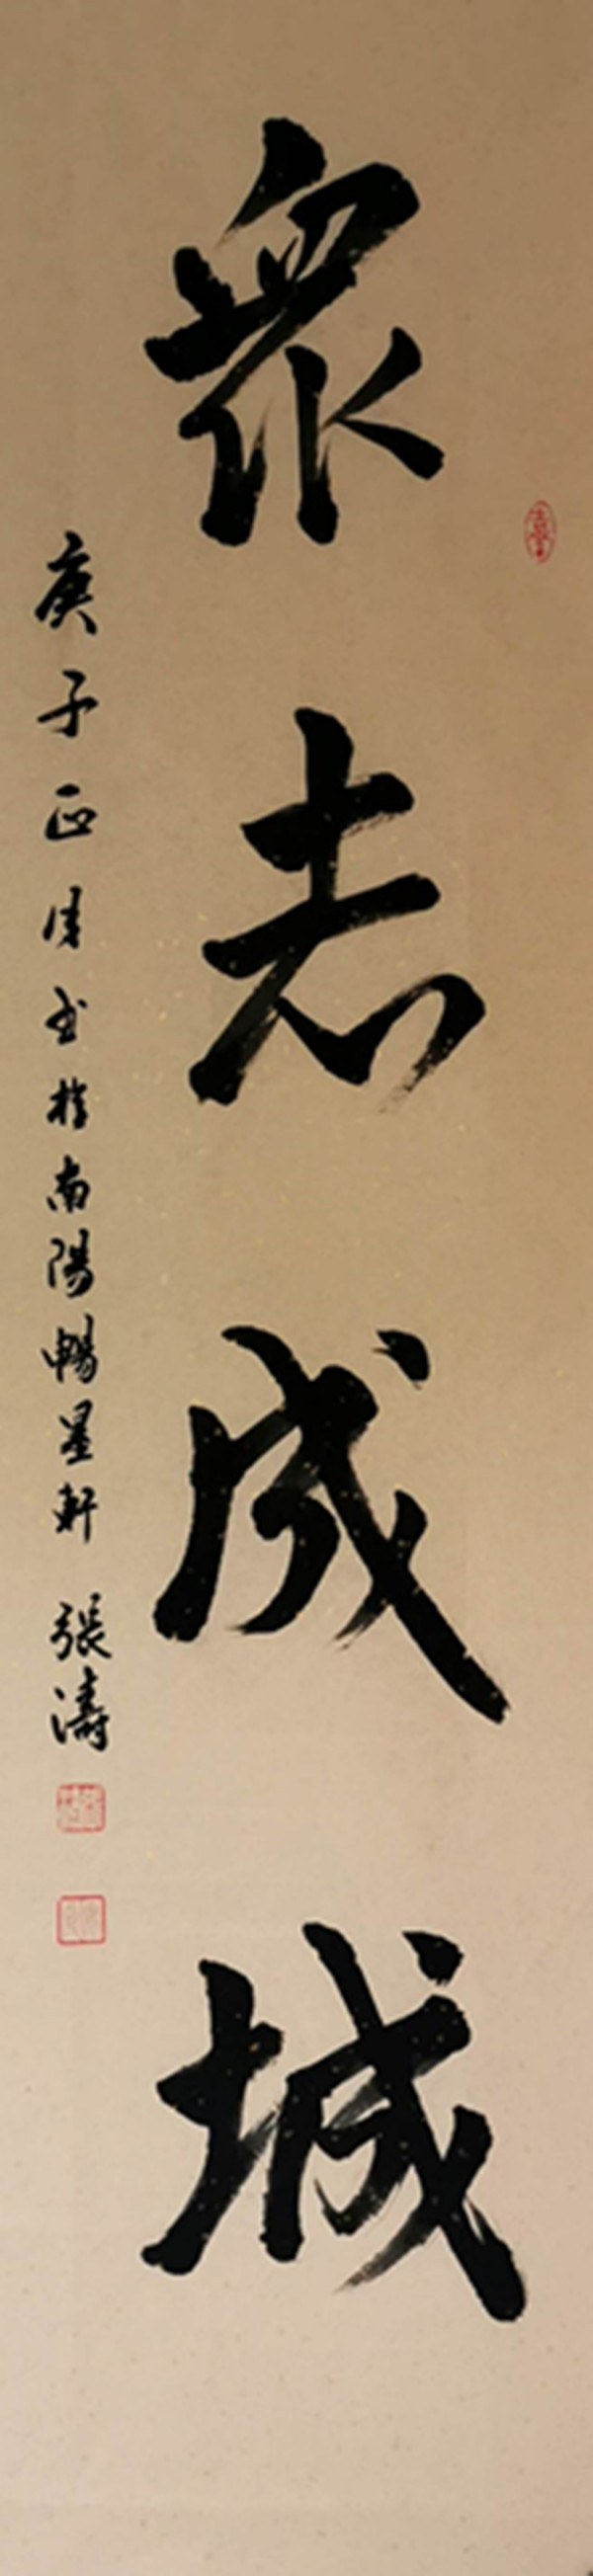 衆志成城
庚子正月書於南陽暢墨軒 張濤